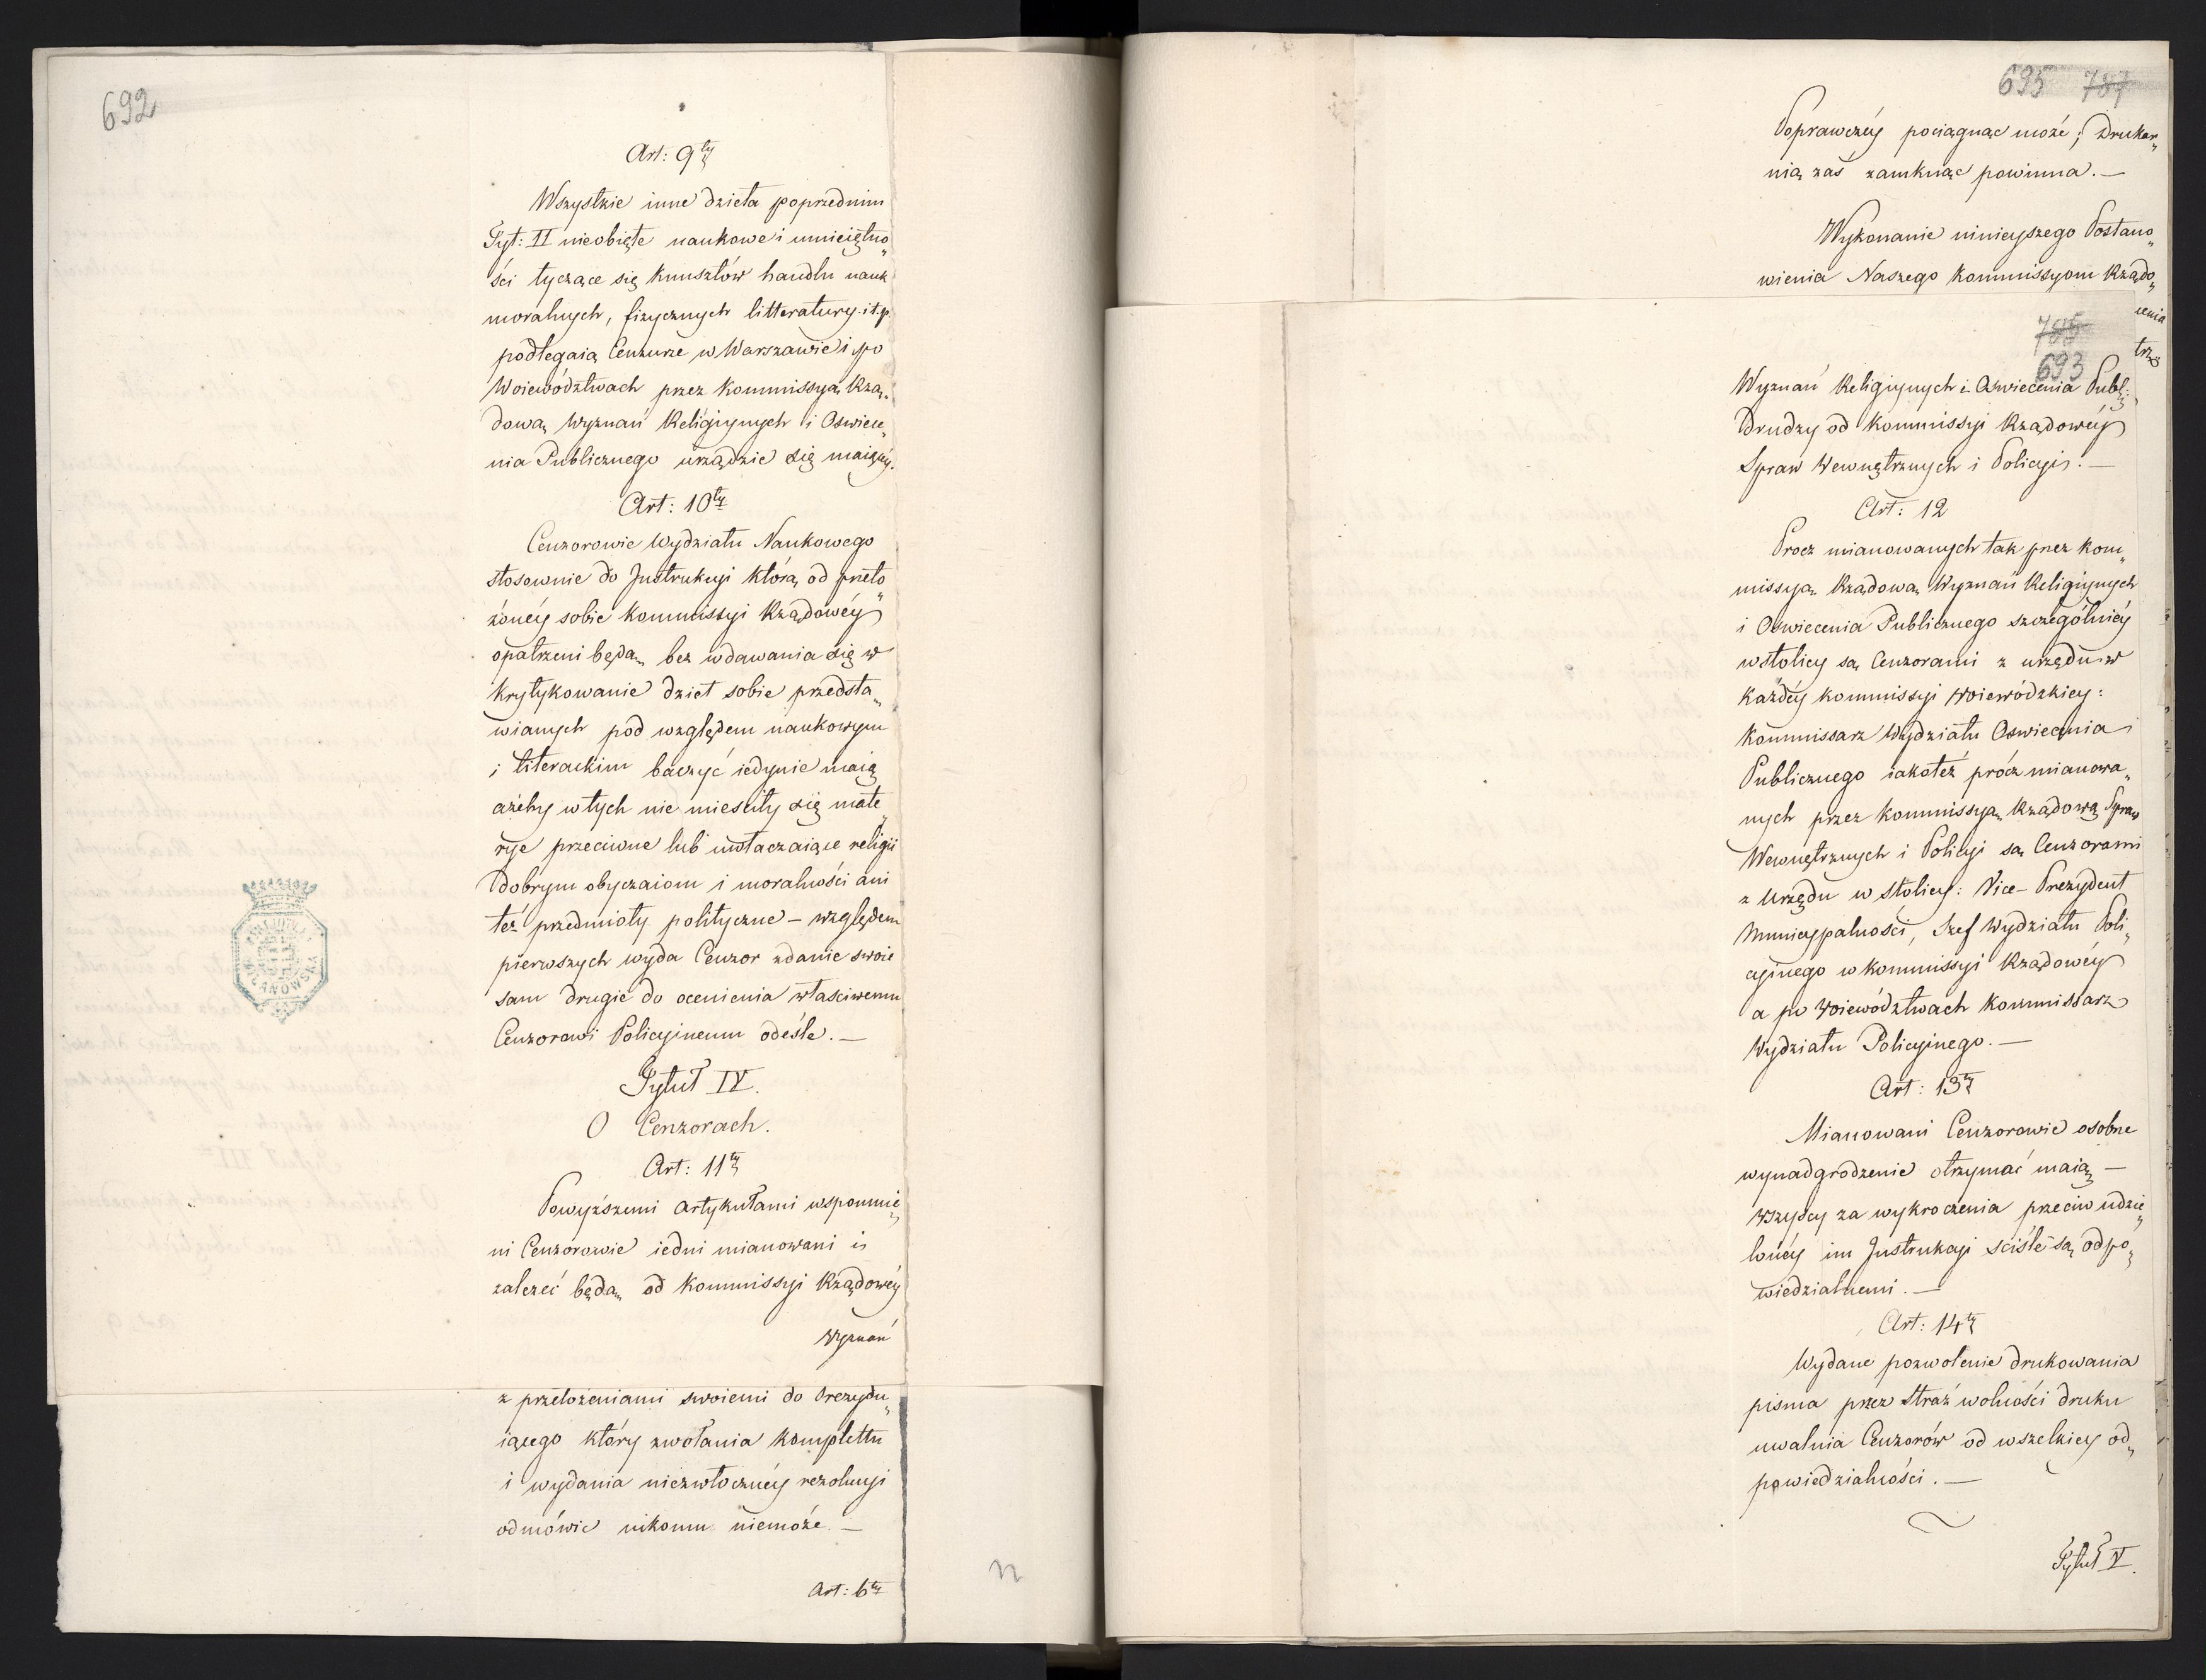 692
Art: 9ty
Wszystkie inne dzieła poprzednim
Tyt: II nieobięte naukowe i umieiętno„
ści tyczące się kunsztów handlu nauk
moralnych, fizycznych litteratury i t.p.
podlegaią Cenzurze w Warszawie i po
Woiewództwach przez Kommissyą Rzą„
dową Wyznań Religiynych i Oswiece„
nia Publicznego urządzić się maiącéy.
Art: 10ty
Cenzorowie Wydziału Naukowego
stosownie do Instrukcyi którą od przeło„
żonéy sobie Kommissyi Rządowéy
opatrzeni będą, bez wdawania się w
krytykowanie dzieł sobie przedsta„
wianych pod względem naukowym
i literackim baczyć iedynie maią
ażeby w tych nie mieściły się mate„
rye przeciwne lub uwłaczaiące religii
dobrym obyczaiom i moralności ani
też przedmioty polityczne – względem
pierwszych wyda Cenzor zdanie swoie
sam drugie do ocenienia właściwemu
Cenzorowi Policyinemu odeśle. —
Tytuł IV.
O Cenzorach.
Art: 11ty
Powyższemi artykułami wspomnie„
ni Cenzorowie iedni mianowani i
zależeć będą od Kommissyi Rządowéy
Wyznań
z przełożeniami swoiemi do Prezydu„
iącego który zwołania komplettu
i wydania niezwłocznéy rezolucyi
odmówić nikomu niemoże. —
Art: 6ty
n
695 787
Poprawczéy pociągnąć może; drukar„
nią zaś zamknąć powinna. —
Wykonanie ninieyszego Postano„
wienia Naszego Kommissyom Rządo„
ienia
trz
785
693
Wyznań Religiynych i Oswiecenia Publ:
drudzy od Kommissyi Rządowéy
Spraw Wewnętrznych i Policyi. —
Art: 12
Procz mianowanych tak przez Kom„
missyą Rządową Wyznań Religiynych
i Oswiecenia Publicznego szczególniéy
w stolicy są Cenzorami z urzędu w
każdéy Kommissyi Woiewódzkiey:
Kommissarz Wydziału Oswiecenia
Publicznego iakoteż prócz mianowa„
nych przez Kommissyą Rządową Spraw
Wewnętrznych i Policyi są Cenzorami
z Urzędu w Stolicy: Vice-Prezydent
Municypalności, Szef Wydziału Poli„
cyinego w Kommissyi Rządowéy
a po Woiewództwach Kommissarz
Wydziału Policyinego. —
Art: 13ty
Mianowani Cenzorowie osobne
wynadgrodzenie otrzymać maią —
Wszyscy za wykroczenia przeciw udzie„
lonéy im Instrukcyi sciśle są odpo„
wiedzialnemi. —
Art: 14ty
Wydane pozwolenie drukowania
pisma przez Straż wolności druku
uwalnia Cenzorów od wszelkiey od„
powiedzialności. —
Tytuł V.